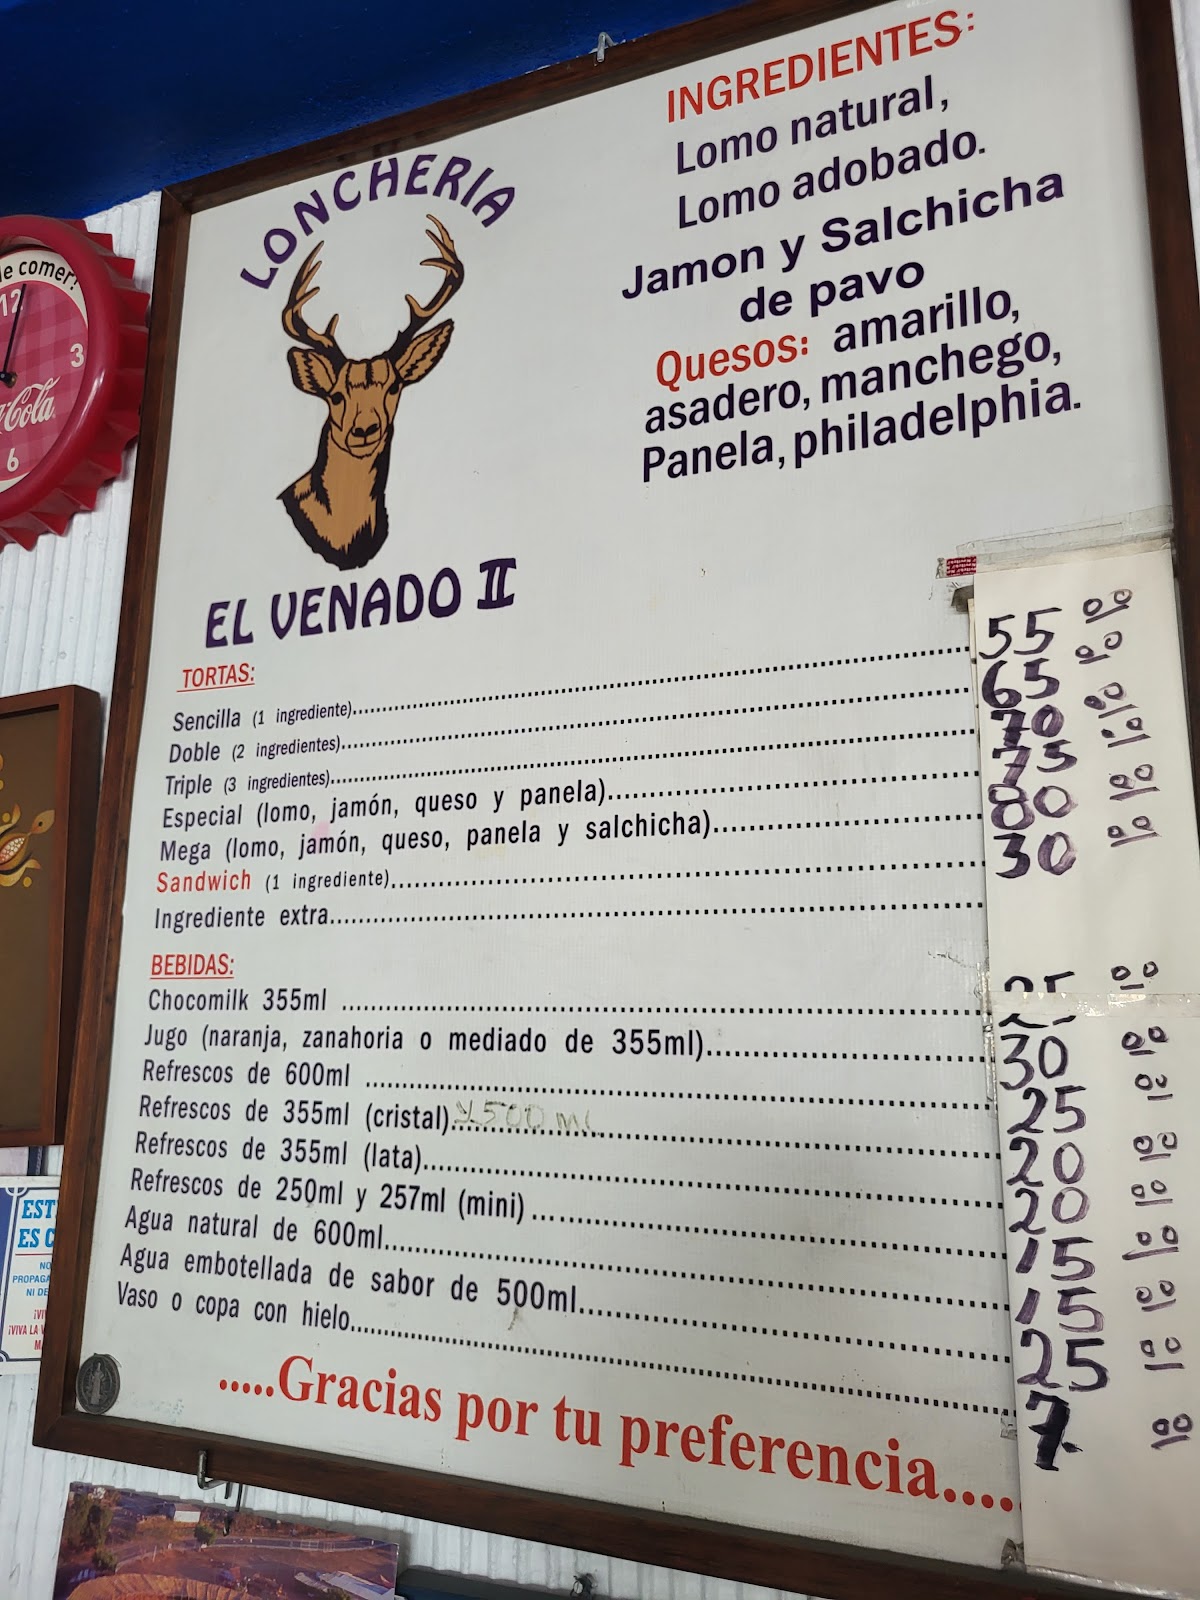 LONCHERIA
EL VENADO II
INGREDIENTES:
Lomo natural,
Lomo adobado.
Jamon y Salchicha
de pavo
Quesos: amarillo,
asadero, manchego,
Panela, philadelphia.
TORTAS:
Sencilla (1 ingrediente)
Doble (2 ingredientes)
Triple (3 ingredientes)
Especial (lomo, jamón, queso y panela)
Mega (lomo, jamón, queso, panela y salchicha)
Sandwich (1 ingrediente)
Ingrediente extra
55 00
65 00
70 00
75 00
80 00
30 00
BEBIDAS:
Chocomilk 355ml
Jugo (naranja, zanahoria o mediado de 355ml)
Refrescos de 600ml
Refrescos de 355ml (cristal) y 500 ml
Refrescos de 355ml (lata)
Refrescos de 250ml y 257ml (mini)
Agua natural de 600ml
Agua embotellada de sabor de 500ml
Vaso o copa con hielo
25 00
30 00
25 00
20 00
20 00
15 00
15 00
25 00
7 00
.....Gracias por tu preferencia.....
de comer!
12
3
6
Coca-Cola
EST
ES C
NO
PROPAGA
NI DE
¡VI
¡VIVA LA
M